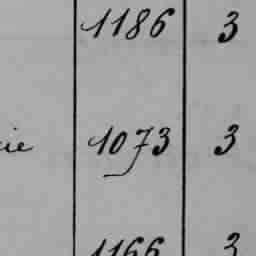 1186 3
1073 3
1166 3